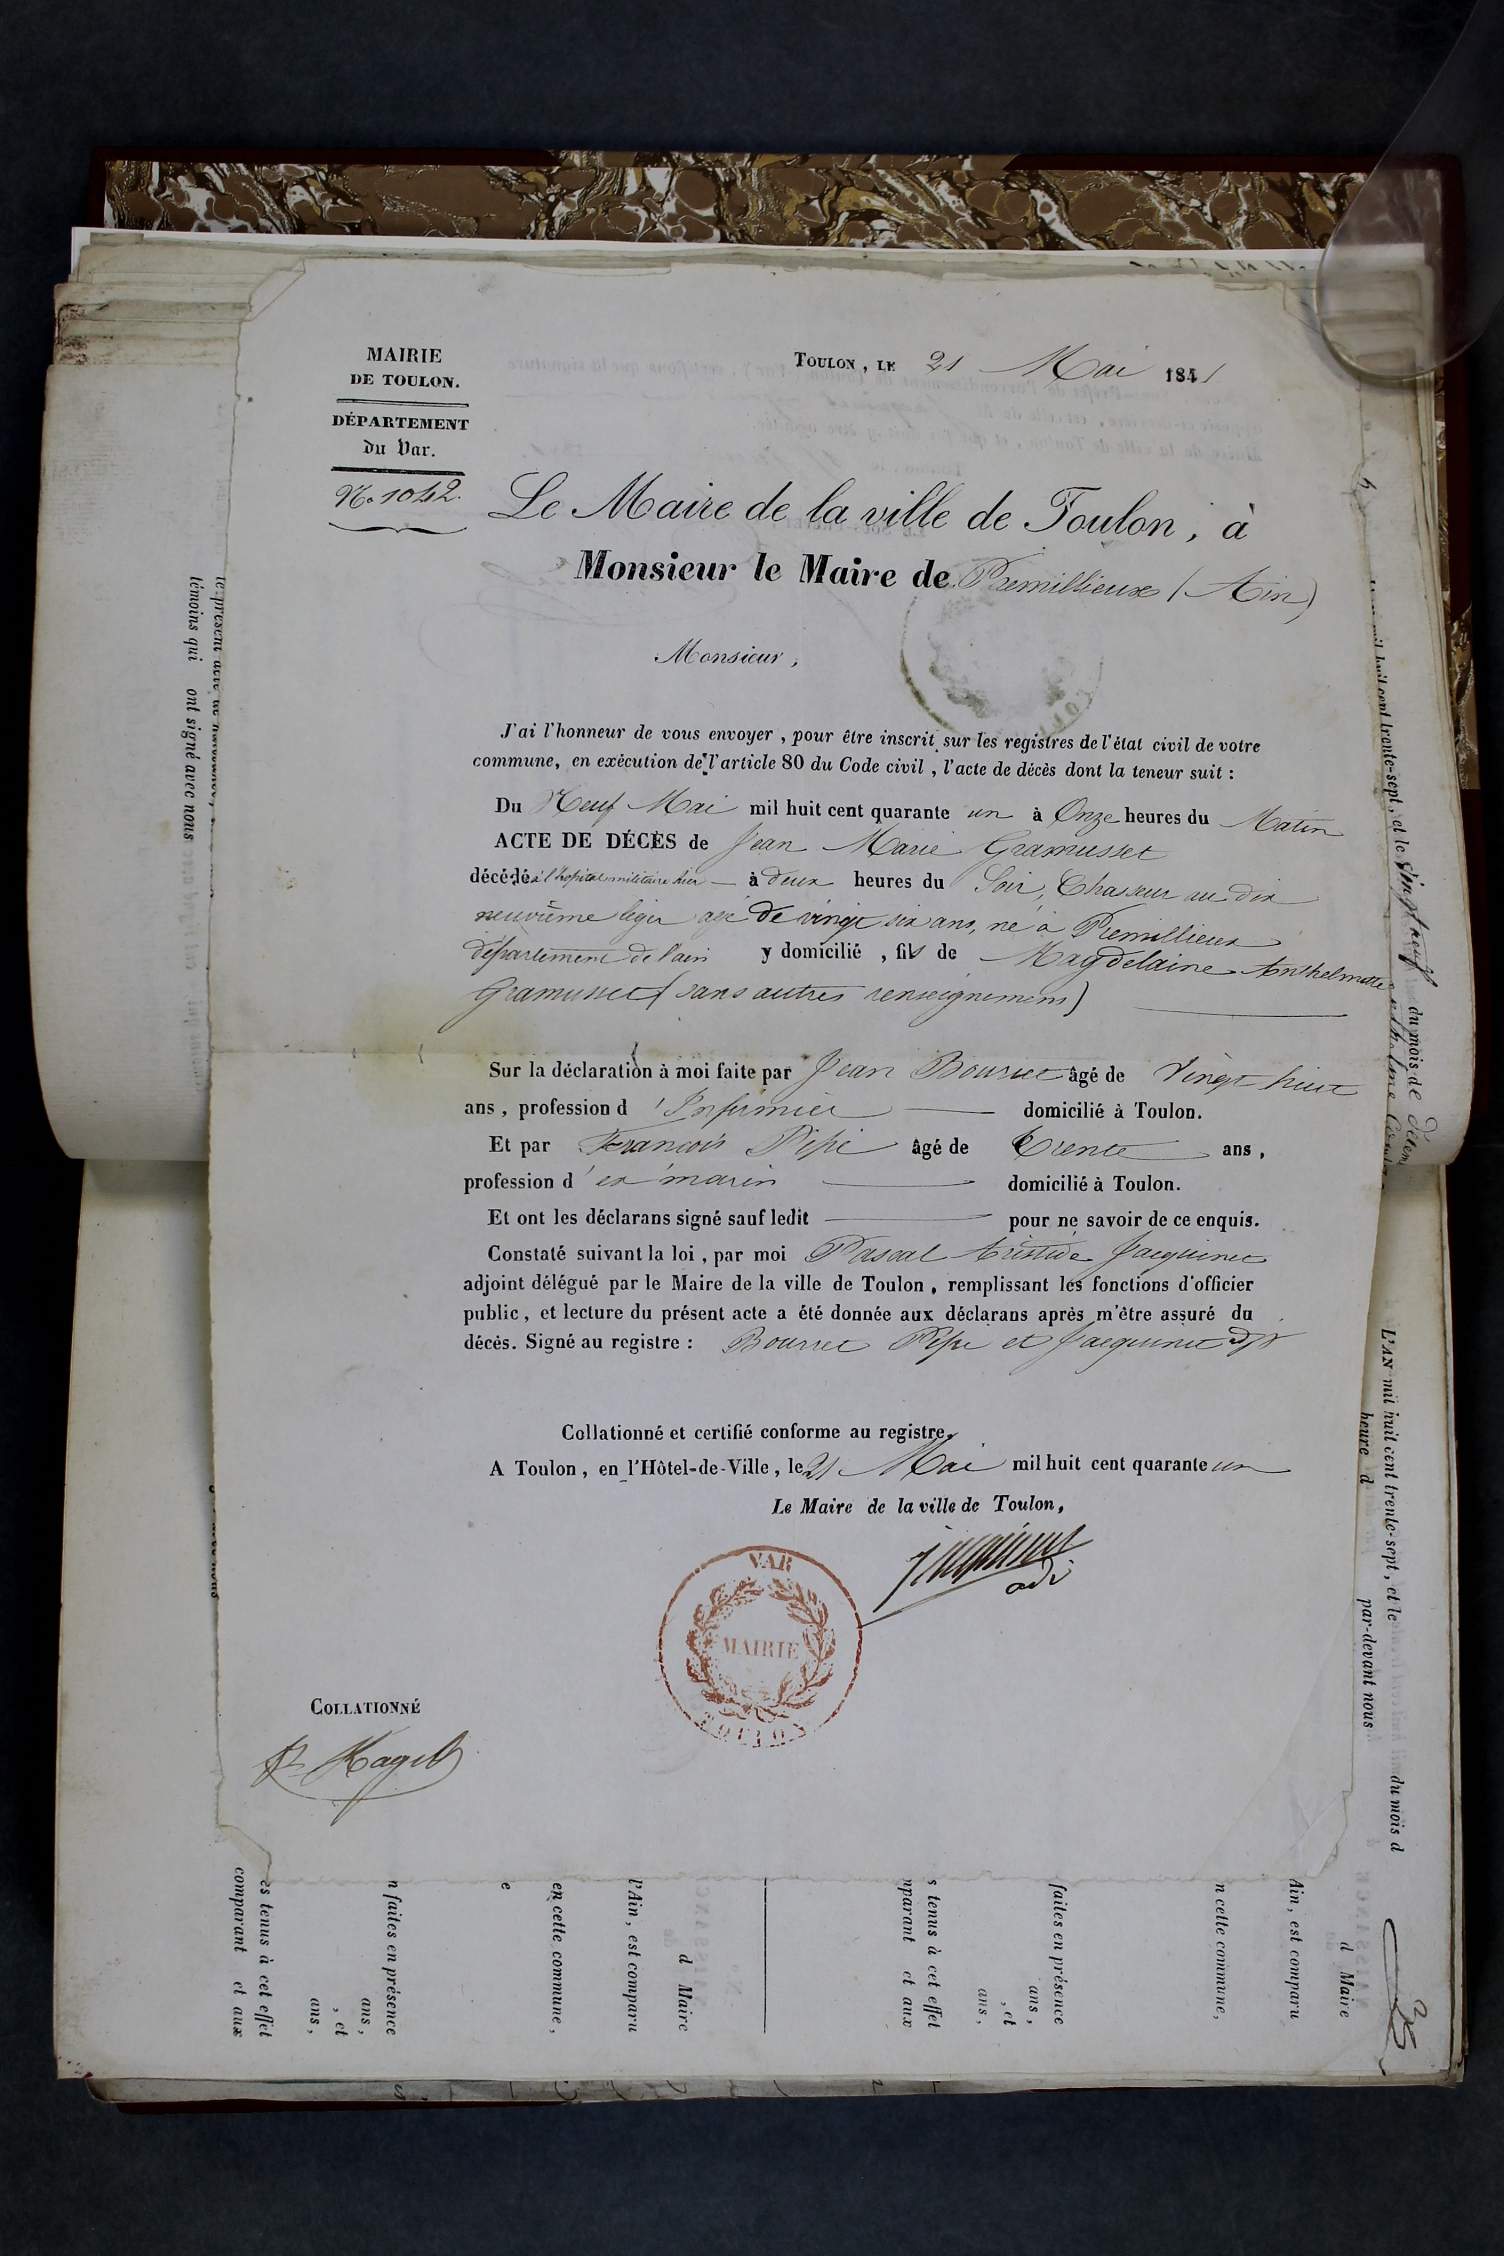 MAIRIE
DE TOULON.
DÉPARTEMENT
du Var.
No 1042.
TOULON, LE 21 Mai 1841
Le Maire de la ville de Toulon, à
Monsieur le Maire de Premillieux (Ain)
Monsieur,
J'ai l'honneur de vous envoyer, pour être inscrit sur les registres de l'état civil de votre
commune, en exécution de l'article 80 du Code civil, l'acte de décès dont la teneur suit :
Du Neuf Mai mil huit cent quarante un à Onze heures du Matin
ACTE DE DÉCÈS de Jean Marie Gramusset
décédé à l'hopital militaire hier à deux heures du Soir, Chasseur au dix
neuvième léger agé de vingt six ans, né à Premillieux
département de l'ain y domicilié, fils de Magdelaine Anthelmette
Gramusset (sans autres renseignemens)
Sur la déclaration à moi faite par Jean Bourret âgé de Vingt huit
ans, profession d'Infirmier domicilié à Toulon.
Et par François Pipi âgé de trente ans,
profession d'ex marin domicilié à Toulon.
Et ont les déclarans signé sauf ledit pour ne savoir de ce enquis.
Constaté suivant la loi, par moi Pascal Aristide Jacquinet
adjoint délégué par le Maire de la ville de Toulon, remplissant les fonctions d'officier
public, et lecture du présent acte a été donnée aux déclarans après m'être assuré du
décès. Signé au registre : Bourret Pipi et Jacquinet adjt
Collationné et certifié conforme au registre.
A Toulon, en l'Hôtel-de-Ville, le 21 Mai mil huit cent quarante un
Le Maire de la ville de Toulon,
Jacquinet
adj
VAR
MAIRIE
TOULON
COLLATIONNÉ
témoins qui ont signé avec nous
L'AN mil huit cent trente-sept, et le du mois d
heure d par-devant nous
d Maire
Ain, est comparu
n cette commune,
faites en présence
ans,
, et
ans,
s tenus à cet effet
mparant et aux
d Maire
l'Ain, est comparu
en cette commune,
e
n faites en présence
ans,
, et
ans,
es tenus à cet effet
comparant et aux